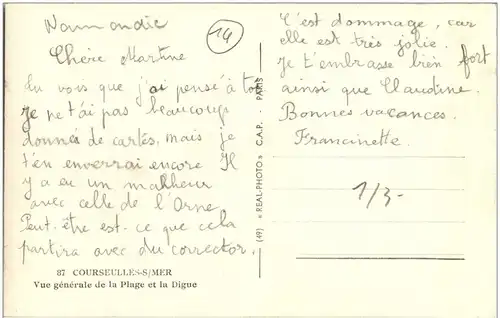 Normandie
14
Chère Martine
tu vois que j'ai pensé à toi
Je ne t'ai pas beaucoup
donnés de cartes, mais je
t'en enverrai encore Il
y a eu un malheur
avec celle de l'Orne
Peut-être est-ce que cela
partira avec du corrector.
87 COURSEULLES-S/MER
Vue générale de la Plage et la Digue
(49) « REAL-PHOTO » C.A.P. - PARIS
C'est dommage, car
elle est très jolie.
Je t'embrasse bien fort
ainsi que Claudine.
Bonnes vacances.
Francinette.
1/3-